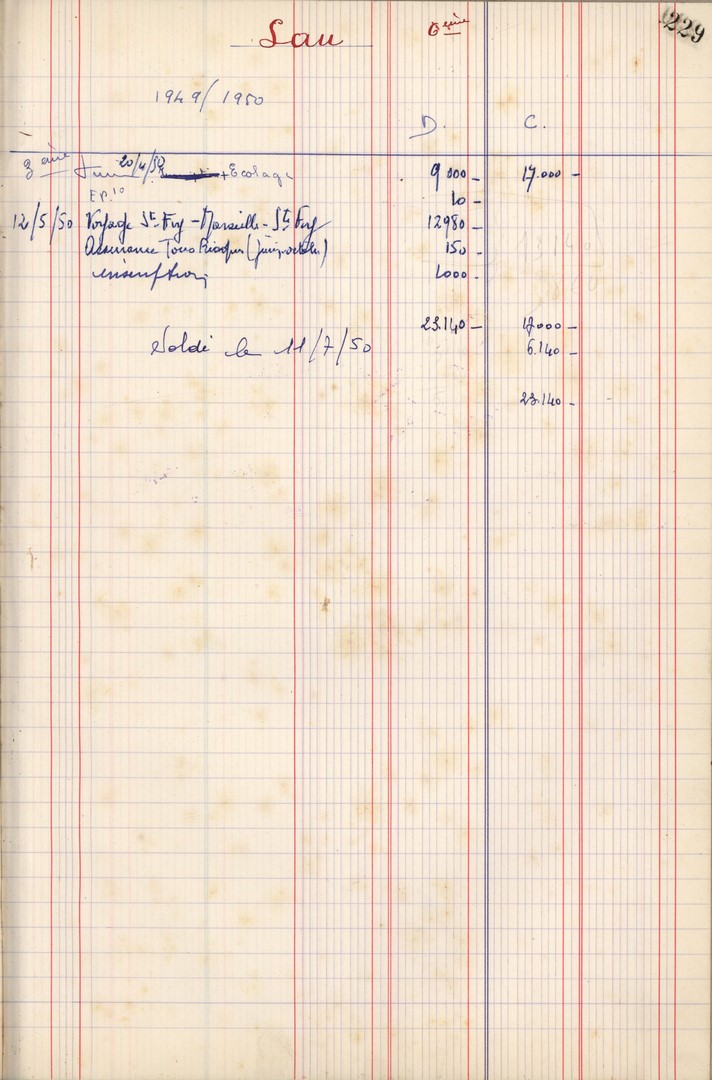 Lau 6ième 229
1949/1950
D. C.
3ème 20/4/50 + Ecolage 9000 - 17.000 -
EP.10 10 -
12/5/50 Voyage St Fry - Marseille - St Fry 12980 -
Assurance Tous Risques (juin-octobre) 150 -
inscription 1000 -
23.140 - 17.000 -
Soldé le 11/7/50 6.140 -
23.140 -